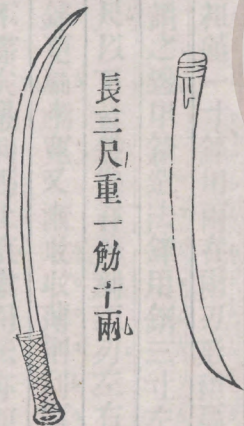 長三尺重一觔十兩